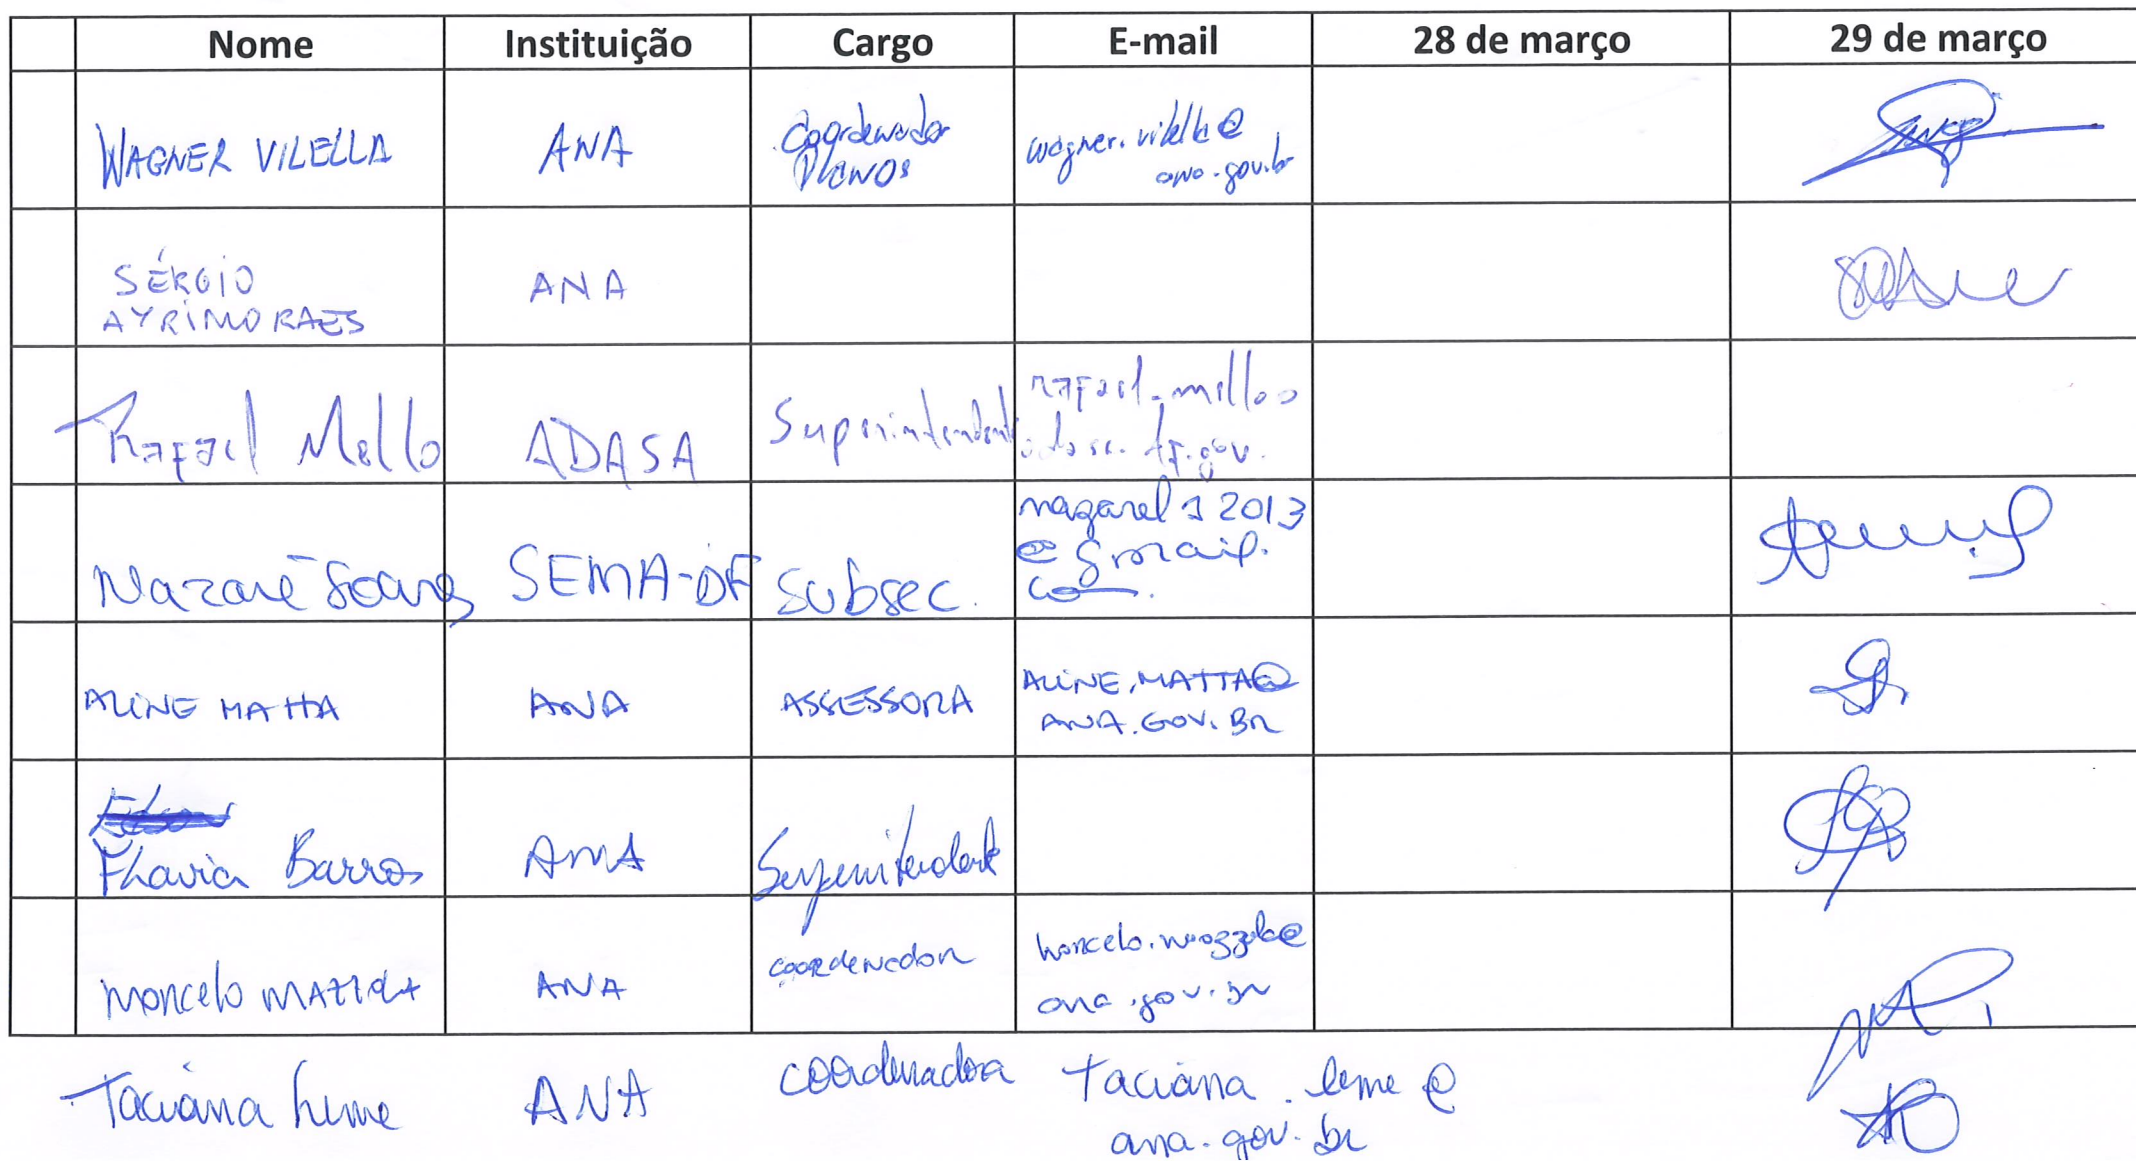 Nome Instituição Cargo E-mail 28 de março 29 de março
WAGNER VILELLA ANA Coordenador Planos wagner.vilella@ ana.gov.br
SÉRGIO AYRIMORAES ANA
Rafael Mello ADASA Superintendente rafael.mello@ adasa.df.gov.
Nazaré Soares SEMA-DF Subsec. @gmail. com.
ALINE MATTA ANA ASSESSORA ALINE.MATTA@ ANA.GOV.BR
Flavia Barros ANA Superintendente
Marcelo MAZZOLA ANA coordenador marcelo.mazzola@ ana.gov.br
Taciana Leme ANA coordenadora taciana.leme@ ana.gov.br